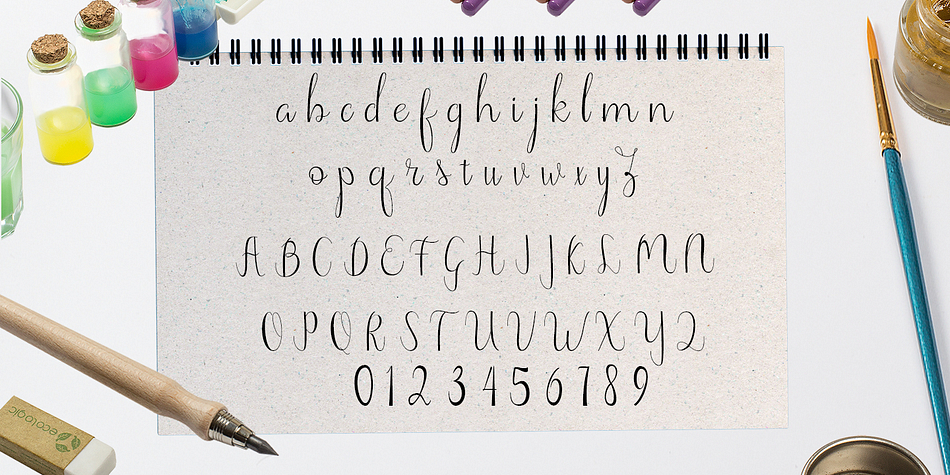 a b c d e f g h i j k l m n
o p q r s t u v w x y z
A B C D E F G H I J K L M N
O P Q R S T U V W X Y Z
0 1 2 3 4 5 6 7 8 9
ecologic